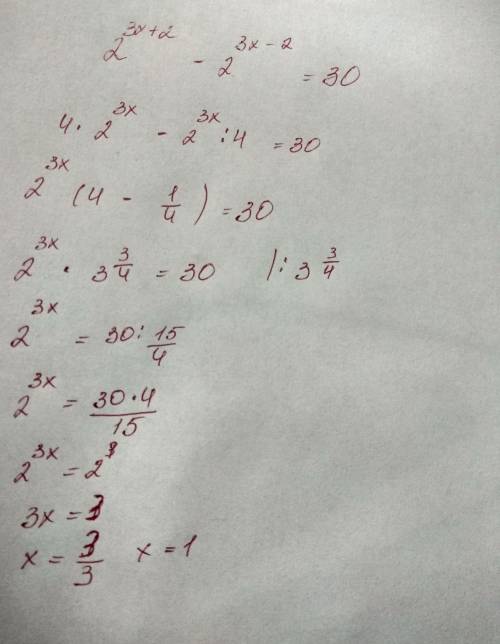 2^{3x+2} - 2^{3x-2} = 30
4 · 2^{3x} - 2^{3x} : 4 = 30
2^{3x} (4 - 1/4) = 30
2^{3x} · 3 3/4 = 30 | : 3 3/4
2^{3x} = 30 : 15/4
2^{3x} = 30·4/15
2^{3x} = 2^{3}
3x = 3
x = 3/3 x = 1